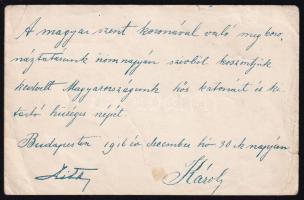 A magyar szent koronával való megkoro,
náztatásunk örömnapján szívből köszöntjük
kedvelt Magyarországunk hős katonáit és ki-
tartó hűséges népét.
Budapesten 1916 évi december hó 30-ik napján
Zita Károly